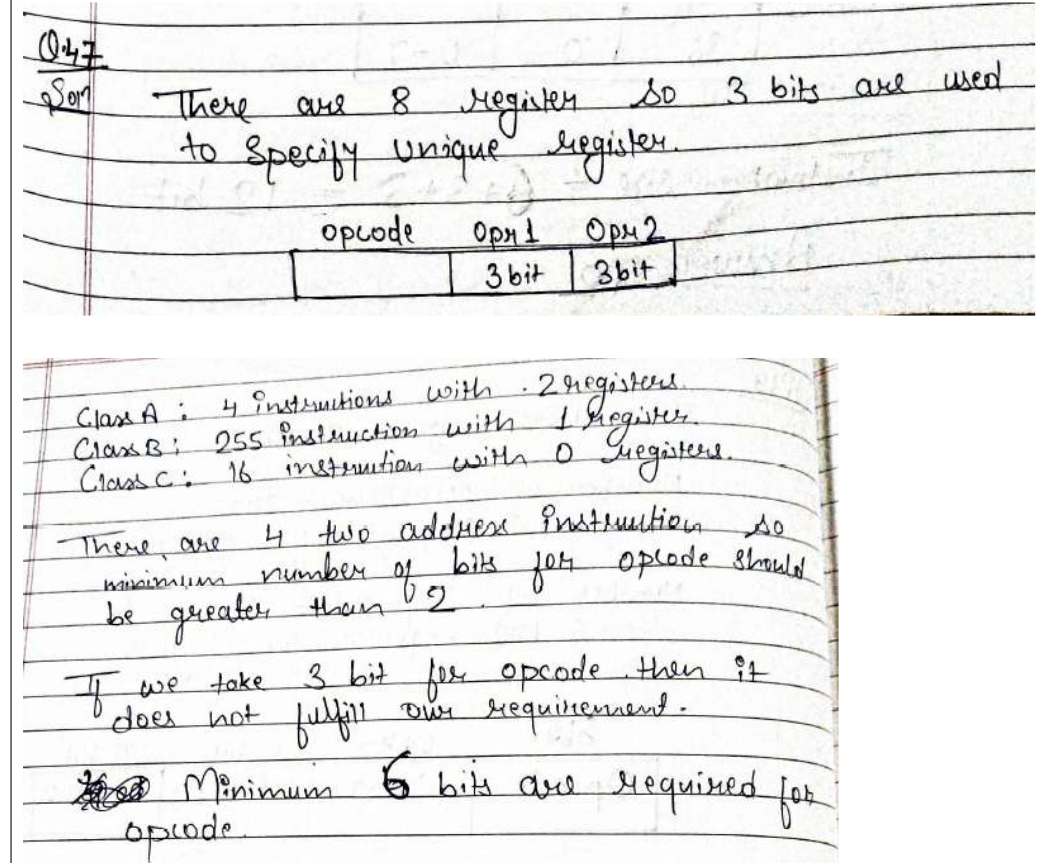 Q.47
Soln
There are 8 register so 3 bits are used
to specify unique register.
opcode Opr1 Opr2
3 bit 3 bit
Class A : 4 instructions with 2 registers.
Class B : 255 instruction with 1 register.
Class C : 16 instruction with 0 registers.
There are 4 two address instruction so
minimum number of bits for opcode should
be greater than 2.
If we take 3 bit for opcode then it
does not fulfill our requirement.
Minimum 6 bits are required for
opcode.